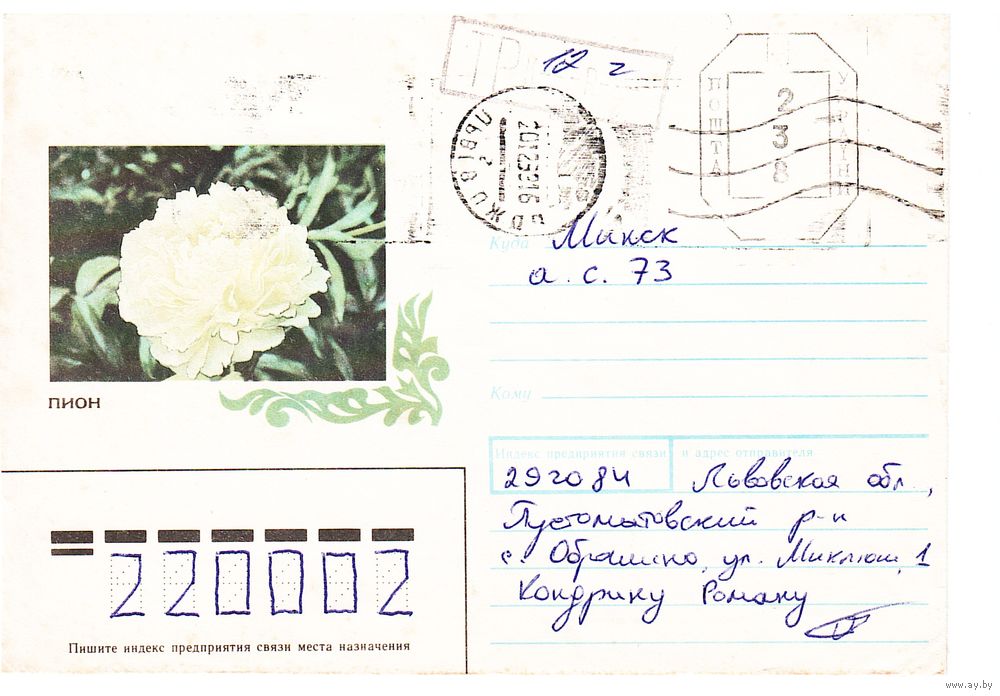 12 г
ПОШТА
2
3
8
Куда Минск
а. с. 73
ПИОН
Кому
Индекс предприятия связи и адрес отправителя
292084 Львовская обл.,
Пустомытовский р-н
с. Оброшино, ул. Миклюш, 1
Кондрику Роману
220002
Пишите индекс предприятия связи места назначения
www.ay.by